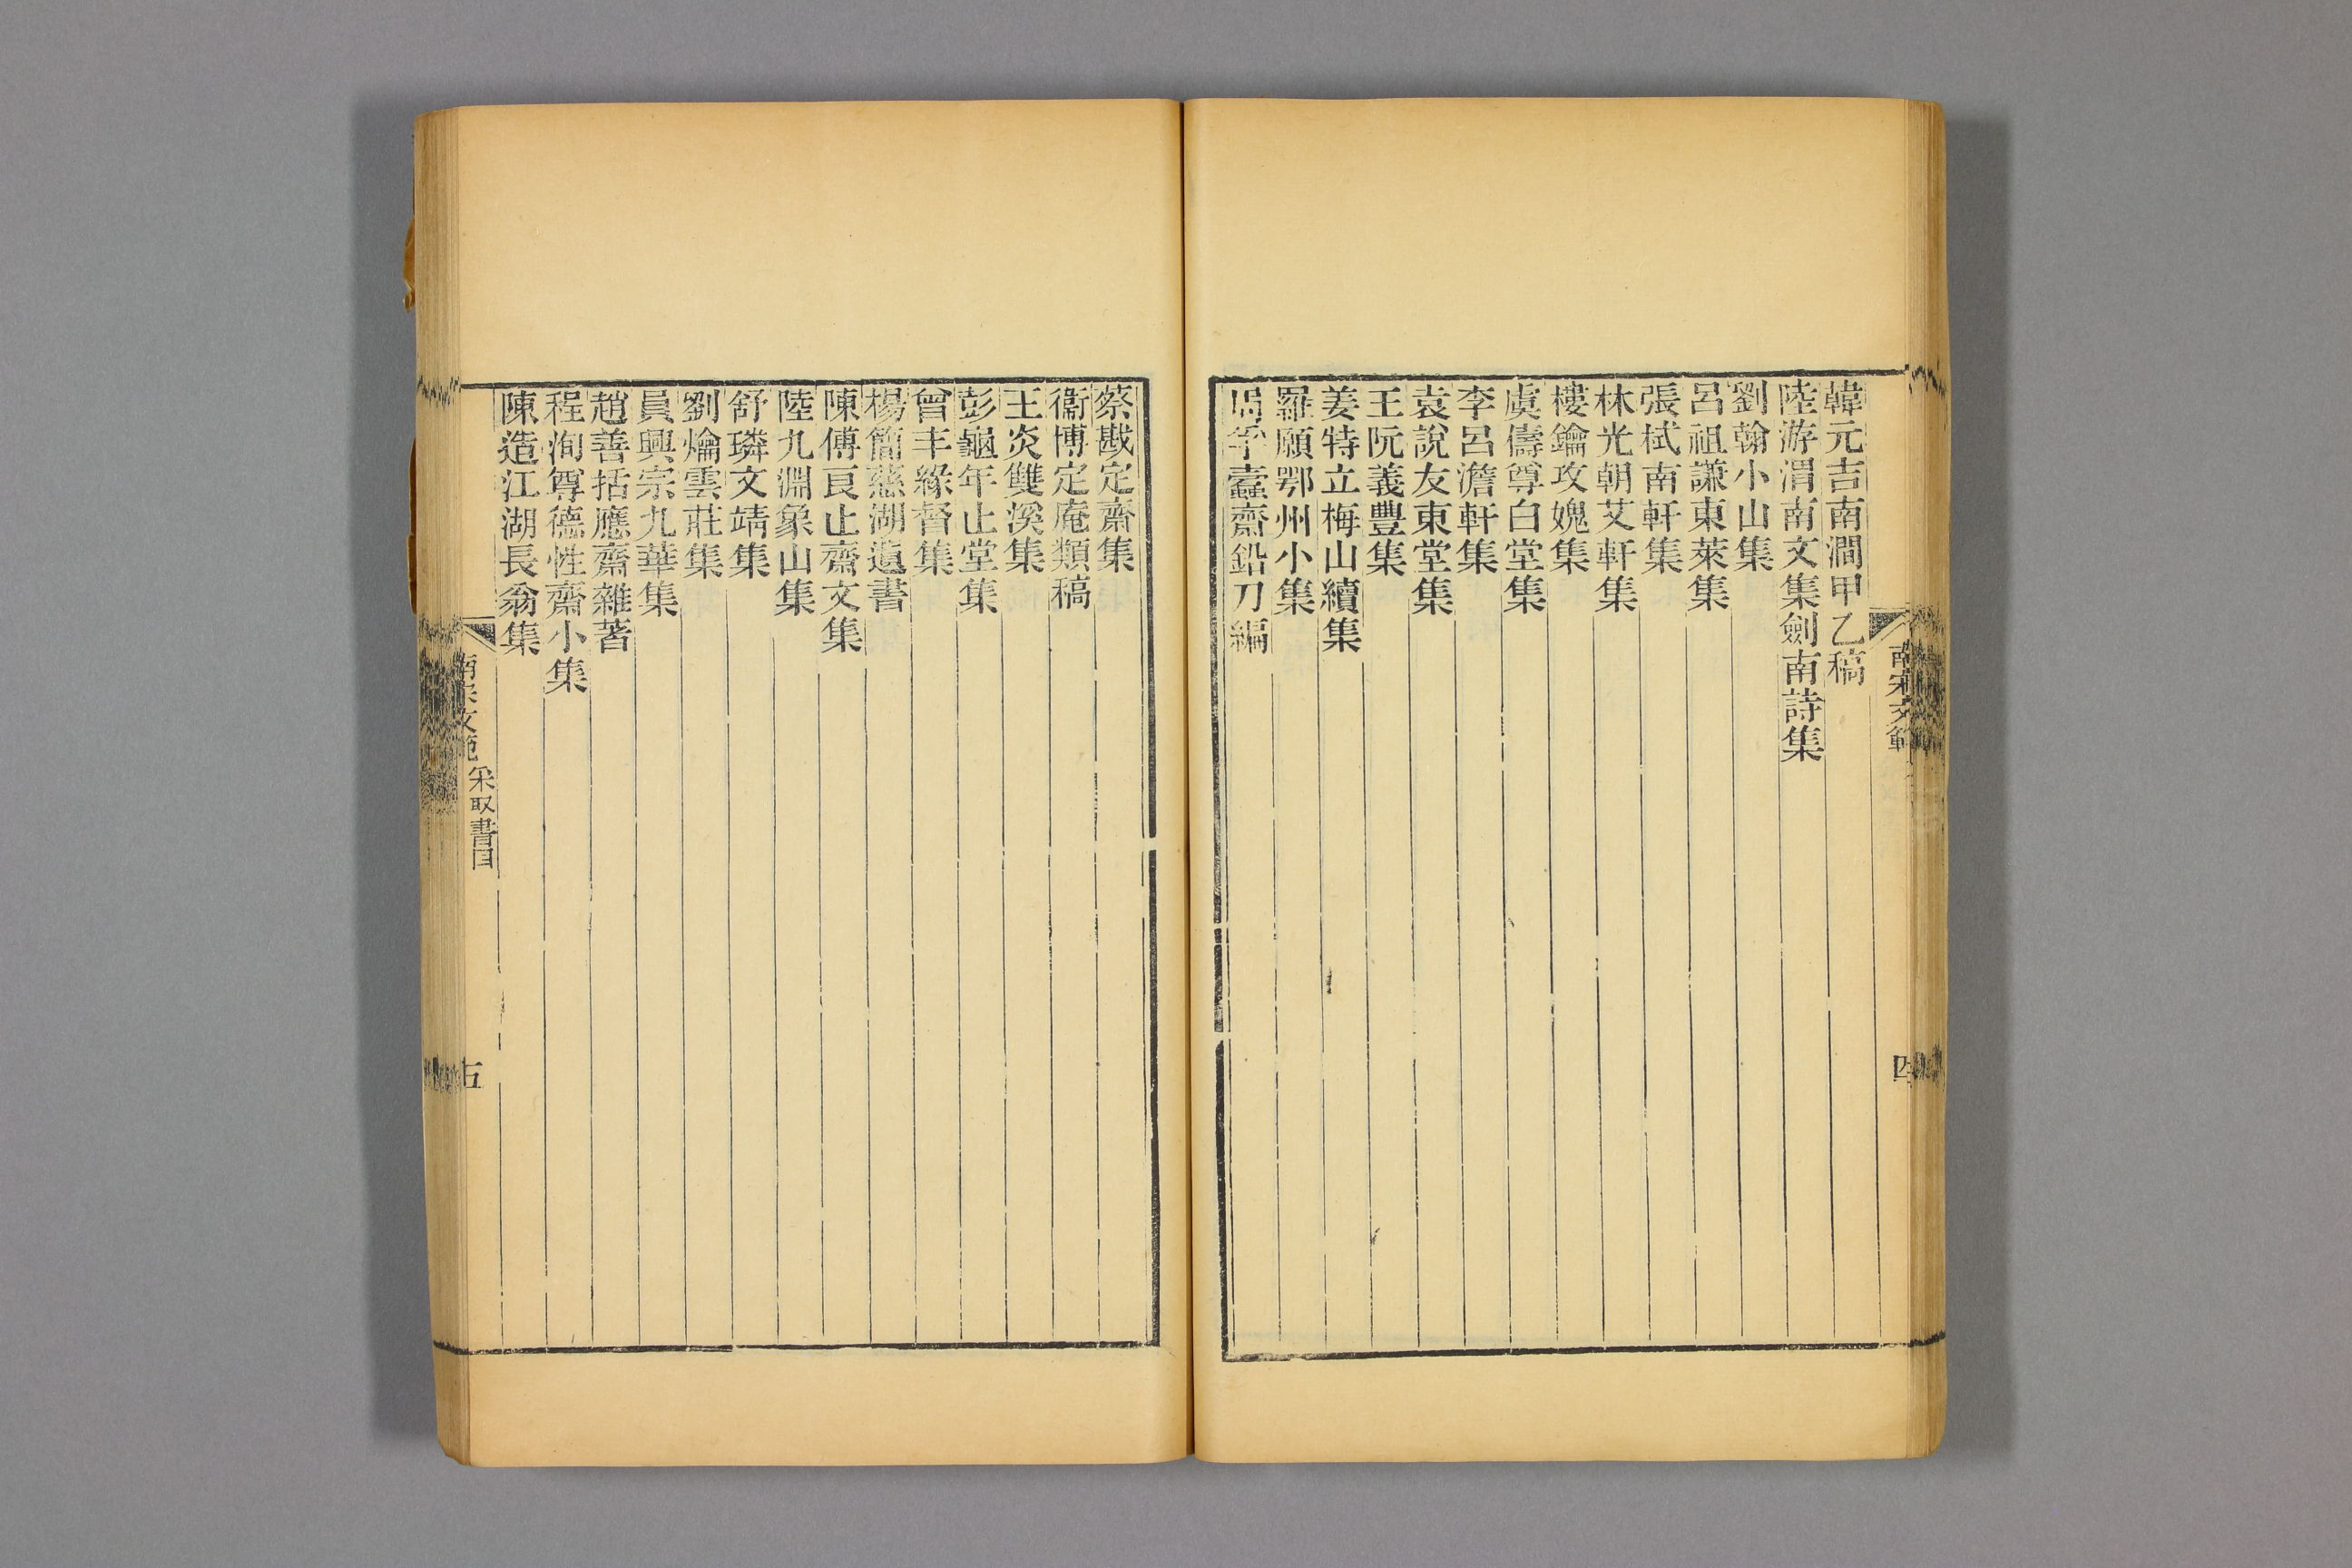 韓元吉南澗甲乙稿
陸游渭南文集劍南詩集
劉翰小山集
呂祖謙東萊集
張栻南軒集
林光朝艾軒集
樓鑰攻媿集
虞儔尊白堂集
李呂澹軒集
袁說友東堂集
王阮義豐集
姜特立梅山續集
羅願鄂州小集
周孚蠹齋鉛刀編
南宋文範
四
蔡戡定齋集
衞博定庵類稿
王炎雙溪集
彭龜年止堂集
曾丰緣督集
楊簡慈湖遺書
陳傅良止齋文集
陸九淵象山集
舒璘文靖集
劉爚雲莊集
員興宗九華集
趙善括應齋雜著
程洵尊德性齋小集
陳造江湖長翁集
南宋文範 采取書目
五